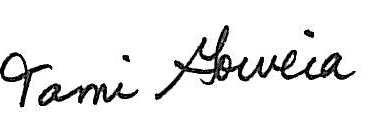 Tami Gouveia